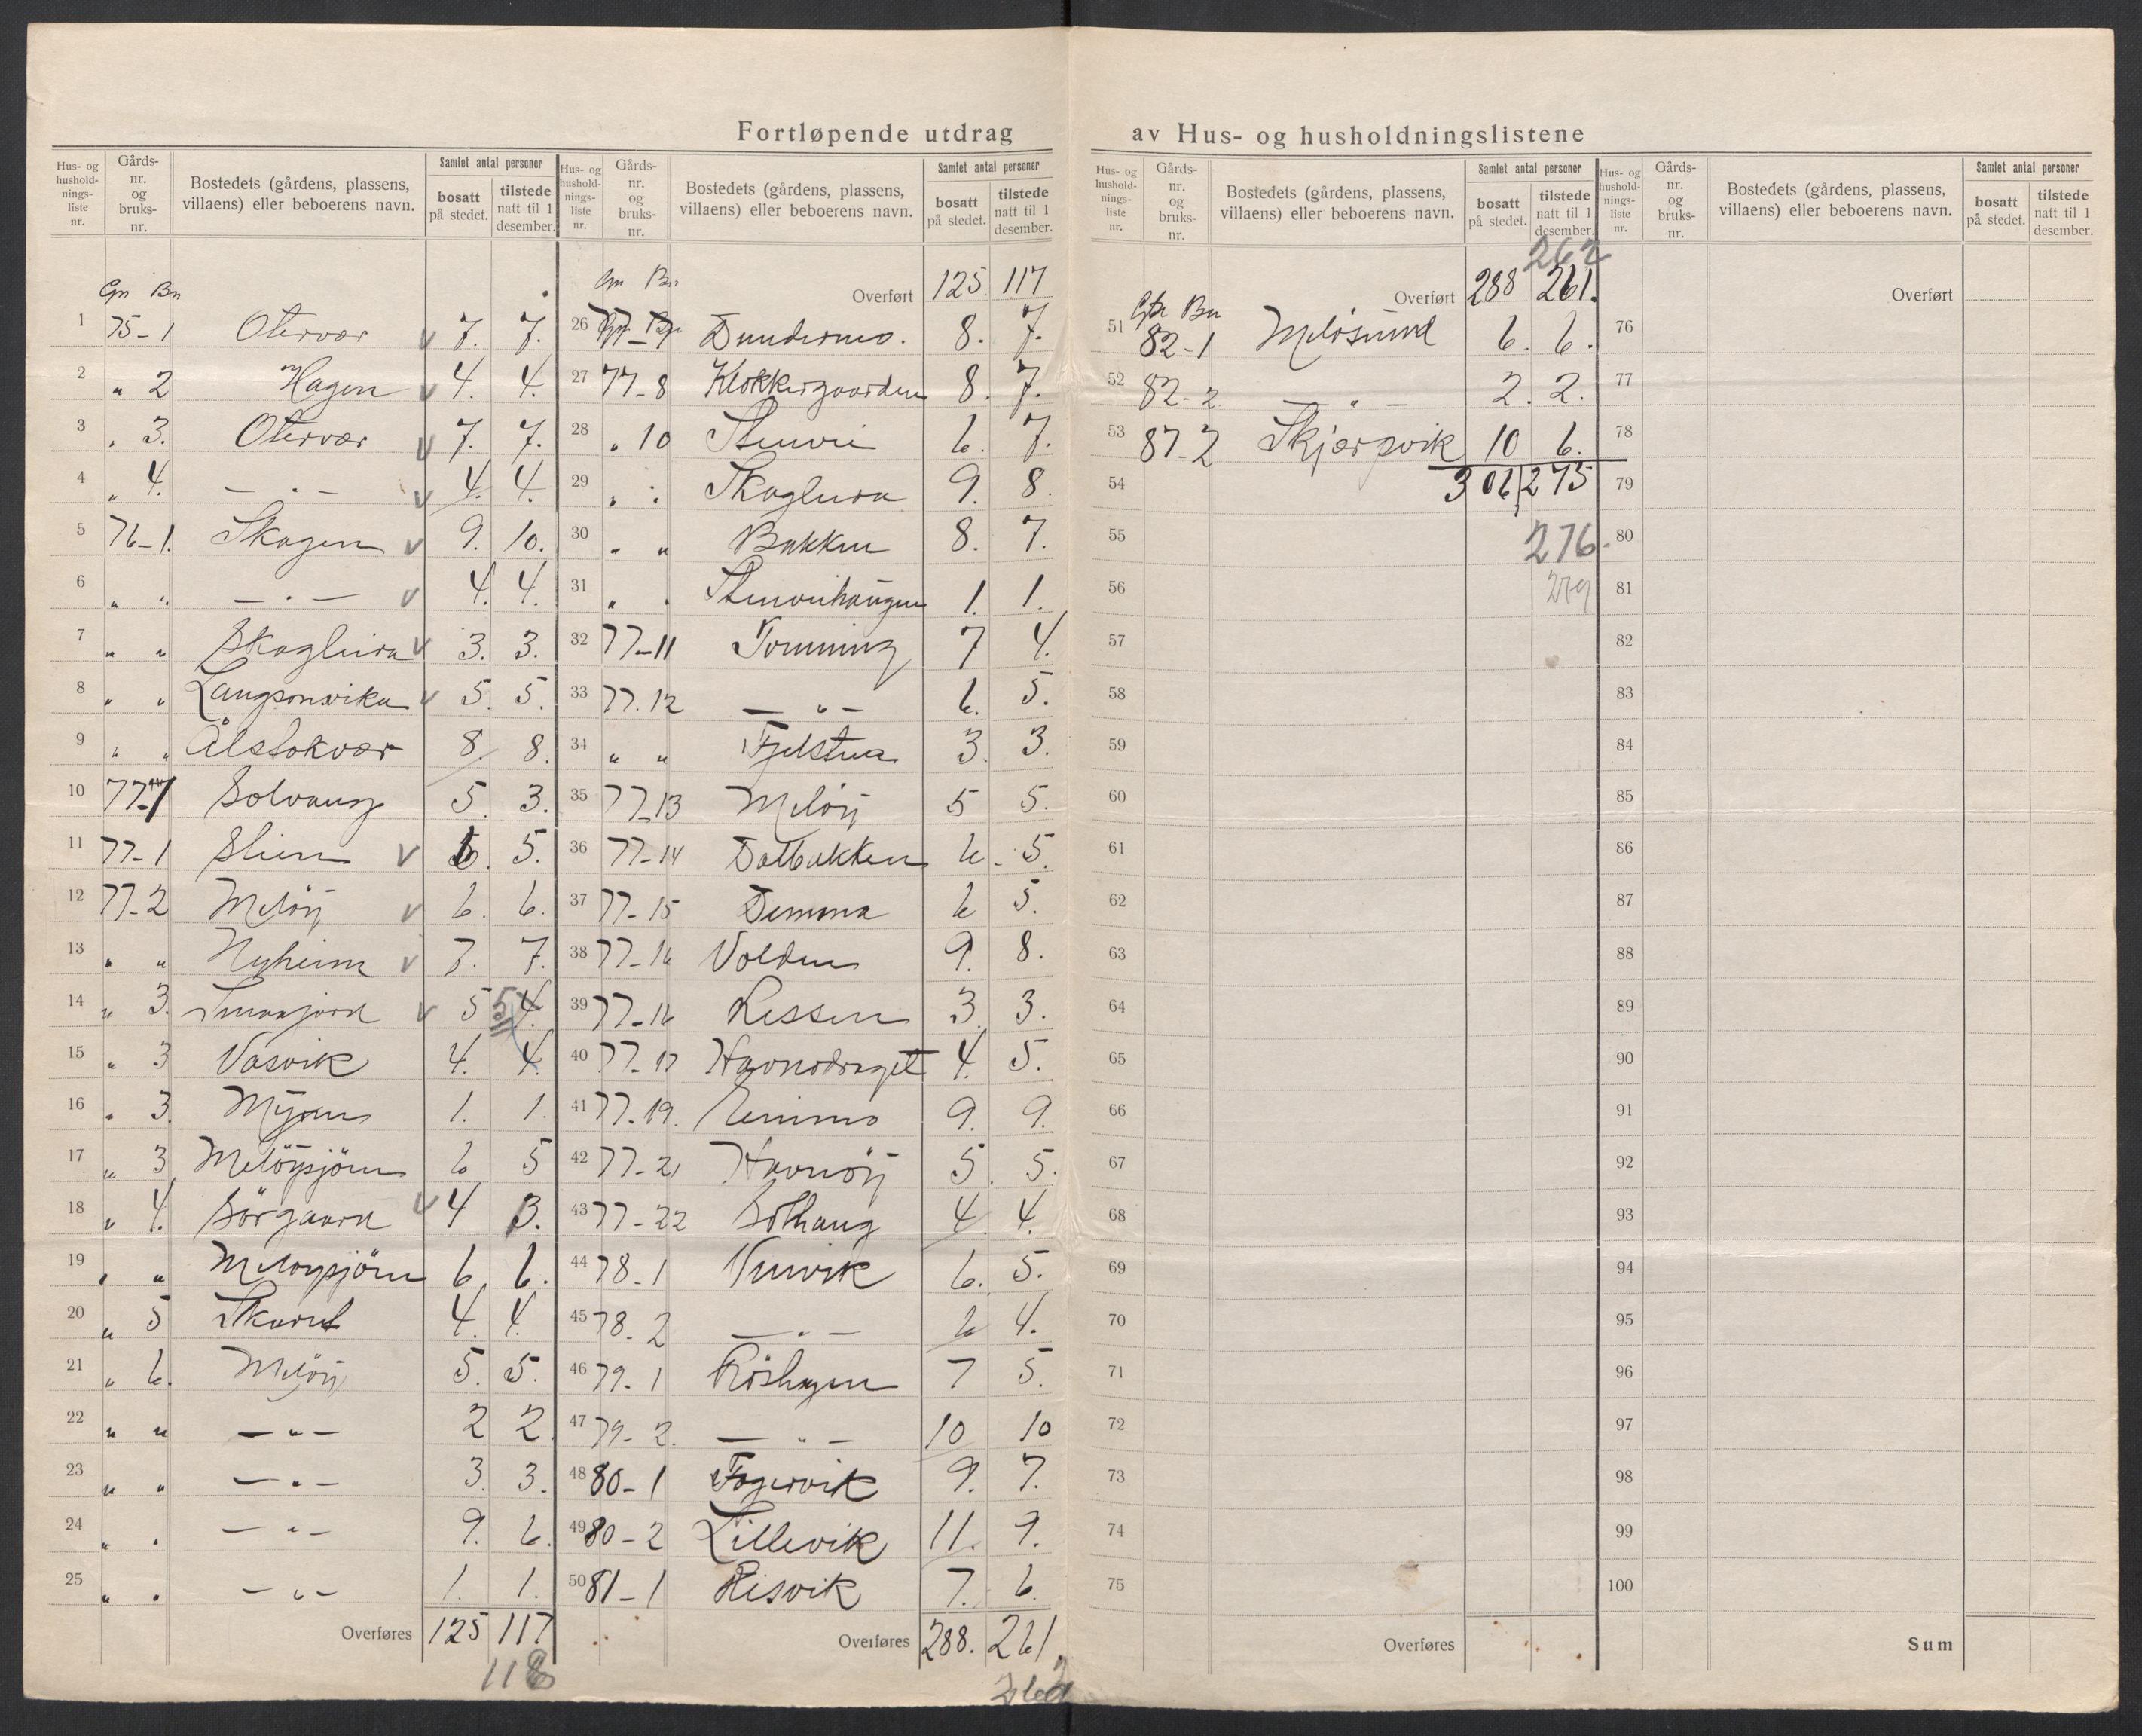 Fortløpende utdrag av Hus- og husholdningslistene
Hus- og hushold-nings-liste nr. | Gårds-nr. og bruks-nr. | Bostedets (gårdens, plassens, villaens) eller beboerens navn. | Samlet antal personer | bosatt på stedet. | tilstede natt til 1 desember.
Gn Bn
1 75-1 Otervær v 7. 7.
2 " 2 Hagen v 4. 4.
3 " 3. Otervær v 7. 7.
4 " 4. — " — v 4. 4.
5 76-1. Skagen v 9. 10.
6 " " — " — v 4. 4.
7 " " Skoglura v 3. 3.
8 " " Langsonvika v 5. 5.
9 " " Ålstokvær 8. 8.
10 77-7 Solvang 5 3.
11 77-1 v 6. 5.
12 77-2 Melöy v 6. 6.
13 " " Nyheim v 7. 7.
14 " 3. v 5 5 4.
15 " 3 Vasvik 4. 4.
16 " 3. Myren 1. 1.
17 " 3 Melöysjöen 6 5
18 " 4. Sörgaard v 4 3.
19 " " Meløysjöen 6. 6.
20 " 5 Skaret 4. 4.
21 " 6. Melöy 5. 5.
22 " " — " — 2 2.
23 " " — " — 3. 3.
24 " " — " — 9. 6.
25 " " — " — 1. 1.
Overføres 125 117
118
Hus- og hushold-nings-liste nr. | Gårds-nr. og bruks-nr. | Bostedets (gårdens, plassens, villaens) eller beboerens navn. | Samlet antal personer | bosatt på stedet. | tilstede natt til 1 desember.
Gn Bn Overført 125. 117
26 77-7 Dundermo. 8. 7.
27 77-8 Klokkergaarden 8. 7.
28 " 10 6. 7.
29 " : Skoglura 9. 8.
30 " " Bakken 8. 7.
31 " " 1. 1.
32 77-11 7 4.
33 77.12 — " — 6. 5.
34 " " Fjelstua 3. 3.
35 77-13 Melöy 5 5.
36 77-14 Dalbakken 6. 5.
37 77-15 Demma 6 5.
38 77-16 Volden 9. 8.
39 77-16 Ressen 3. 3.
40 77-17 Havnodraget 4. 5.
41 77.19. Enimo 9. 9.
42 77-21 Havnöy 5. 5.
43 77-22 Solhaug 4. 4.
44 78-1 6. 5.
45 78-2 — " — 6 4.
46 79-1 Röshagen 7 5.
47 79-2. — " — 10 10
48 80-1 Fagervik 9. 7.
49 80-2 Lillevik 11. 9.
50 81-1 Risvik 7. 6.
Overføres 288. 261.
262
Hus- og hushold-nings-liste nr. | Gårds-nr. og bruks-nr. | Bostedets (gårdens, plassens, villaens) eller beboerens navn. | Samlet antal personer | bosatt på stedet. | tilstede natt til 1 desember.
262
Overført 288 261.
Gn Bn
51 82-1 Melösund 6. 6.
52 82-2 — " — 2. 2.
53 87-2 Skjærpvik 10 6.
54 306 275
55 276
56 279
57
58
59
60
61
62
63
64
65
66
67
68
69
70
71
72
73
74
75
Overføres
Hus- og hushold-nings-liste nr. | Gårds-nr. og bruks-nr. | Bostedets (gårdens, plassens, villaens) eller beboerens navn. | Samlet antal personer | bosatt på stedet. | tilstede natt til 1 desember.
Overført
76
77
78
79
80
81
82
83
84
85
86
87
88
89
90
91
92
93
94
95
96
97
98
99
100
Sum